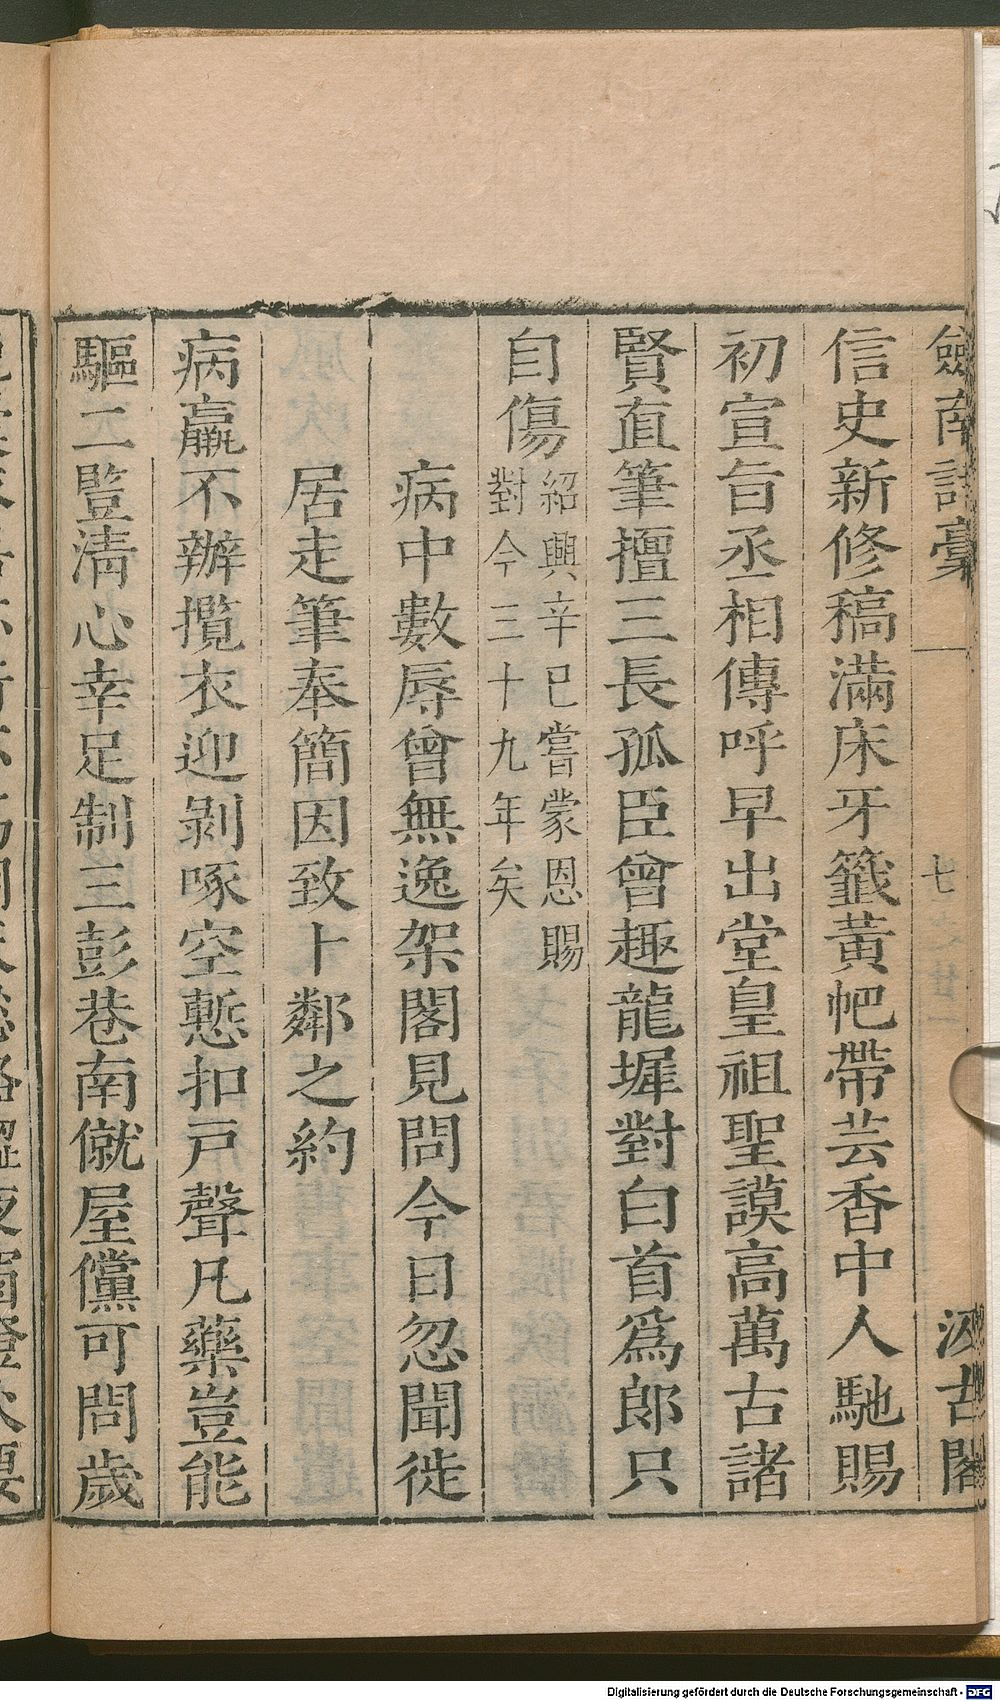 劍南詩稾
七
汲古閣
信史新修稿滿床牙籤黃帊帶芸香中人馳賜
初宣旨丞相傳呼早出堂皇祖聖謨高萬古諸
賢直筆擅三長孤臣曾趣龍墀對白首爲郎只
自傷
紹興辛巳嘗蒙恩賜
對今三十九年矣
病中數辱曾無逸架閣見問今日忽聞徙
居走筆奉簡因致卜鄰之約
病羸不辦攬衣迎剝啄空慙扣戸聲凡藥豈能
驅二豎清心幸足制三彭巷南僦屋儻可問歲
Digitalisierung gefördert durch die Deutsche Forschungsgemeinschaft - DFG